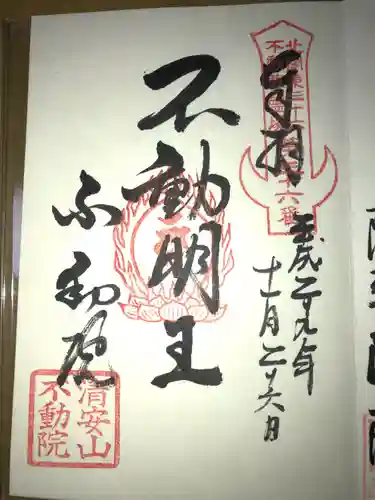 奉拝
平成二十九年
十一月二十六日
不動明王
不動院
北関東三十六
不動尊霊場
十六番
清安山
不動院